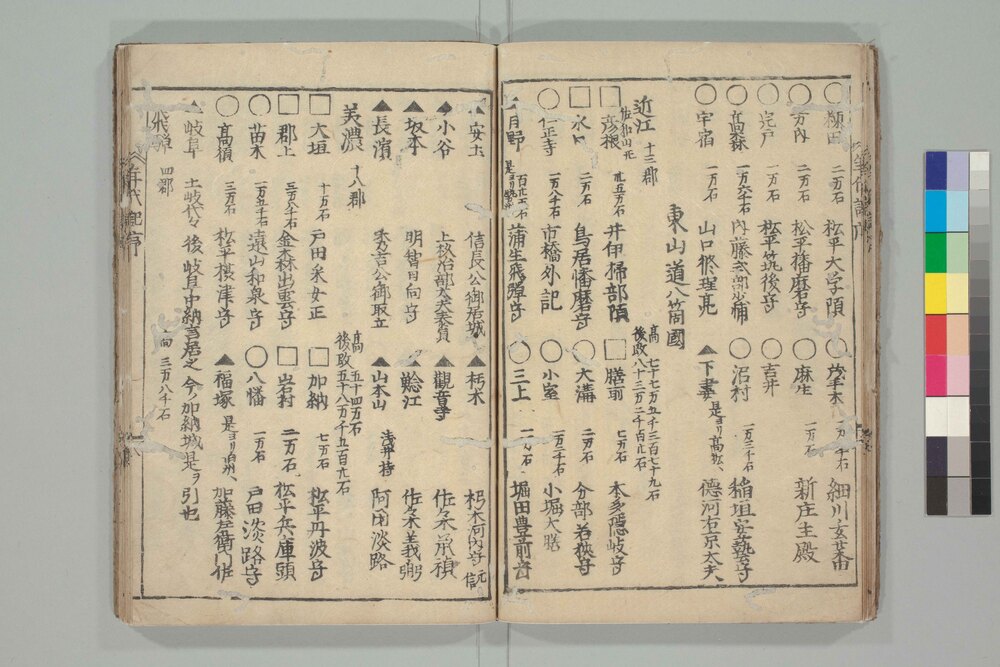 二万石 松平大学頭
茂木 細川玄蕃
二万石 松平播磨守
麻生 一万石 新庄主殿
宍戸 一万石 松平筑後守
吉井
一万六千石 内藤式部少輔
沼村 一万三千石 稲垣安藝守
宇宿 一万石 山口修理亮
下妻 是ヨリ高松 徳河右京太夫
東山道八箇國
近江 十三郡
高 七十七万五千三百七十九石
後改 八十三万二千百九石
彦根 佐和山モ 卅五万石 井伊掃部頭
膳前 七万石 本多隠岐守
水口 二万石 鳥居播磨守
大溝 二万石 分部若狭守
仁正寺 一万八千石 市橋外記
小室 一万三千石 小堀大膳
日野 蒲生飛騨守
三上 一万石 堀田豊前守
安土 信長公御居城
朽木 朽木河内守 元信
小谷
觀音寺 佐々木承禎
坂本 明智日向守
鯰江 佐々木義弼
長濱 秀吉公御取立
山本山 浅井持 阿閉淡路
美濃 十八郡
高 五十四万石
後改 五十八万千五百九石
大垣 十万石 戸田采女正
加納 七万石 松平丹波守
郡上 三万八千石 金森出雲守
岩村 二万石 松平兵庫頭
苗木 一万五千石 遠山和泉守
八幡 一万石 戸田淡路守
高須 三万石 松平摂津守
福塚 加藤左衛門佐
岐阜 土岐代々 後岐阜中納言居之 今ハ加納城是ヲ引也
飛騨 四郡
高 三万八千石
年代記序